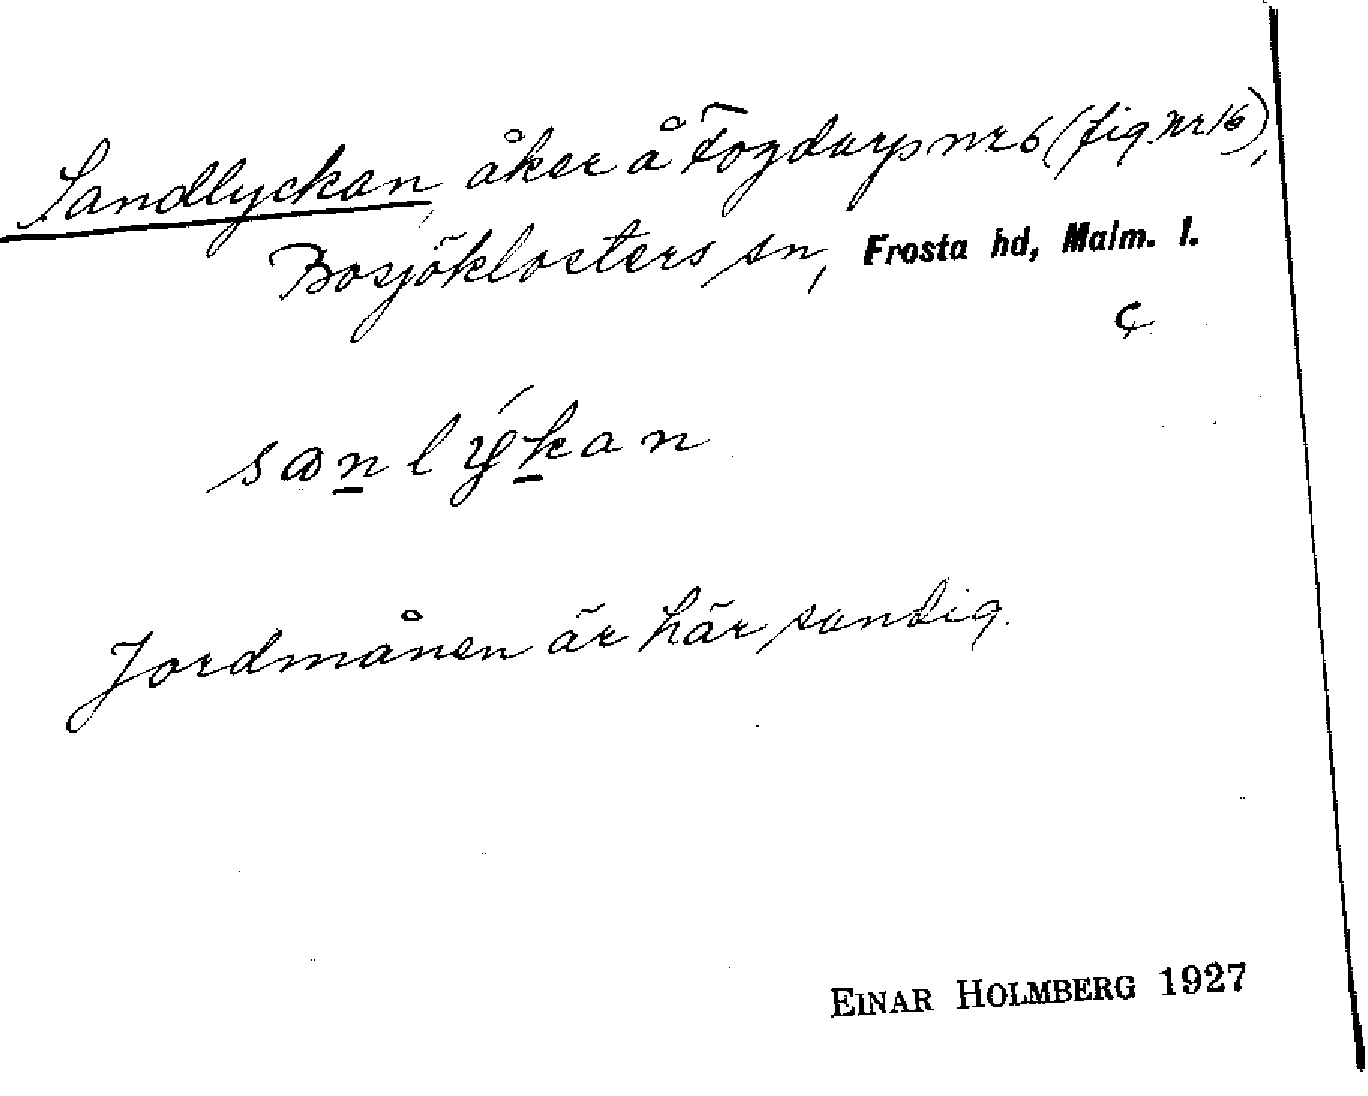 Sandlyckan, åker å Fogdarp nr 6 (fig. nr 16),
Bosjöklosters sn, Frosta hd, Malm. l.
Ç
Jordmånen är här sandig.
EINAR HOLMBERG 1927